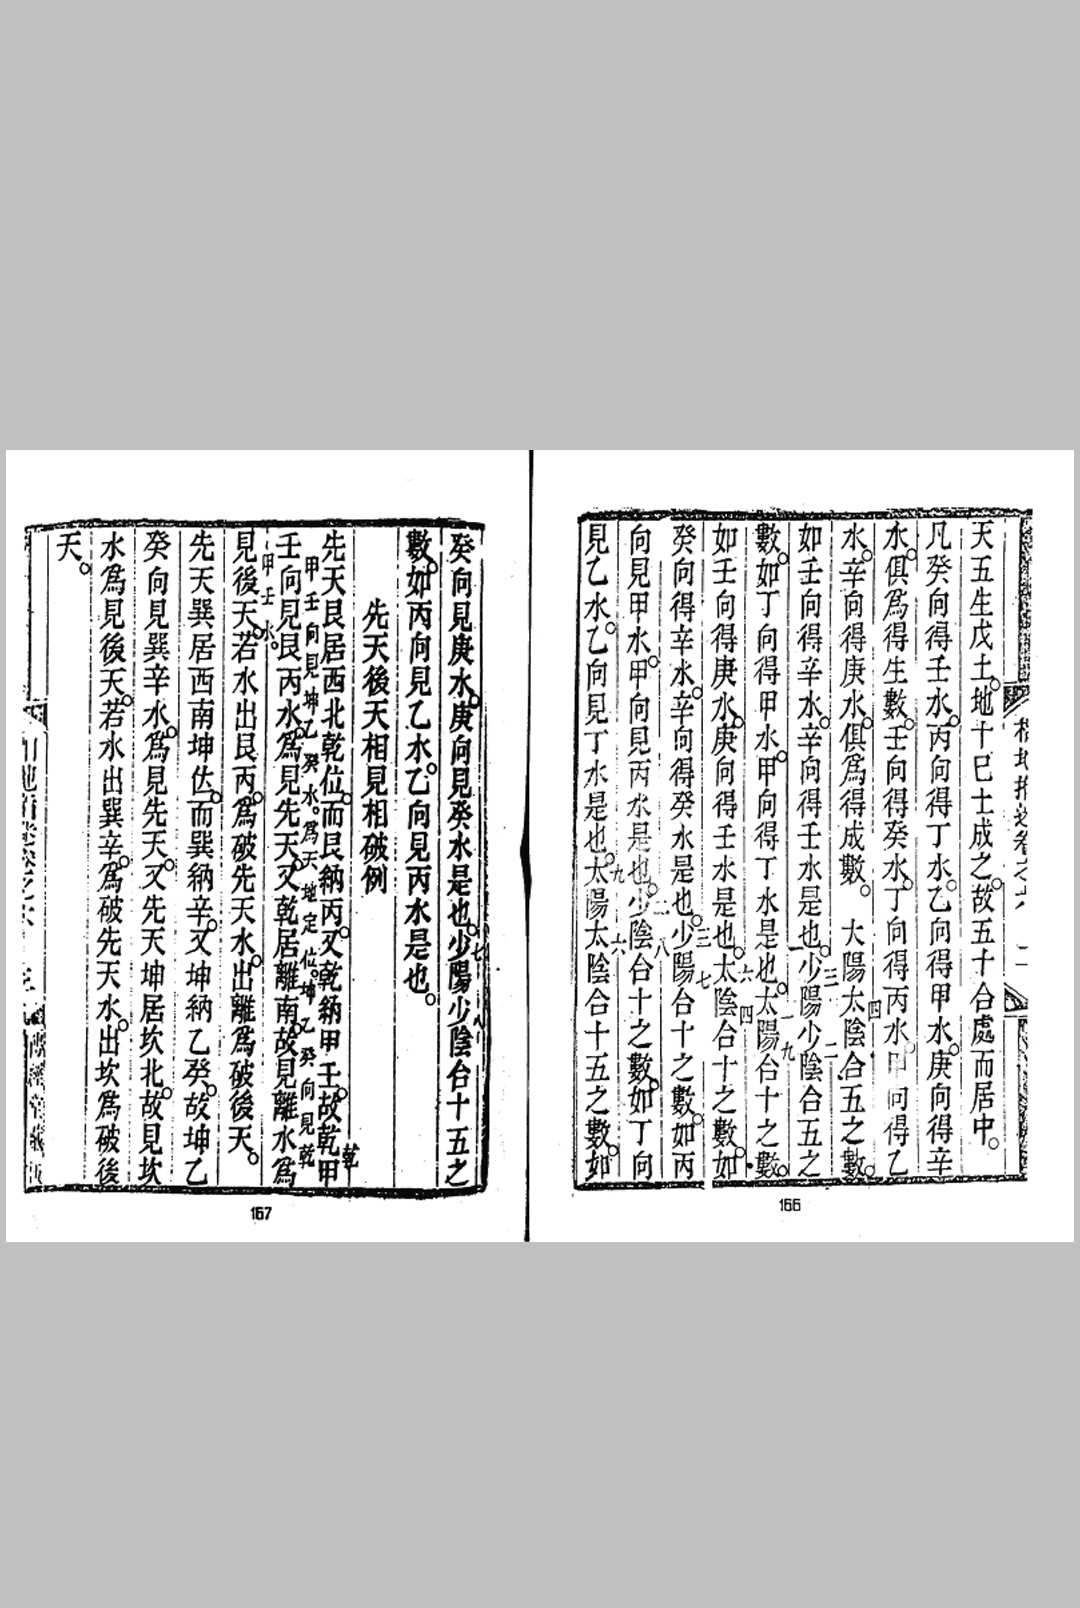 天五生戊土。地十巳土成之。故五十合處而居中。
凡癸向得壬水。丙向得丁水。乙向得甲水。庚向得辛
水。俱爲得生數。壬向得癸水。丁向得丙水。甲向得乙
水。辛向得庚水。俱爲得成數。 大陽太陰合五之數。
四
如壬向得辛水。辛向得壬水是也。少陽少陰合五之
一 三 二
數。如丁向得甲水。甲向得丁水是也。太陽合十之數。
一九
如壬向得庚水。庚向得壬水是也。太陰合十之數。如
六 四
癸向得辛水。辛向得癸水是也。少陽合十之數。如丙
三 七
向見甲水。甲向見丙水是也。少陰合十之數。如丁向
二 八
見乙水。乙向見丁水是也。太陽太陰合十五之數。如
九 六
166
癸向見庚水。庚向見癸水是也。少陽少陰合十五之
七 八
數。如丙向見乙水。乙向見丙水是也。
先天後天相見相破例
先天艮居西北乾位。而艮納丙。又乾納甲壬。故乾甲
乾
甲壬向見坤乙癸水。爲天地定位。坤乙癸向見乾
壬向見艮丙水。爲見先天。又乾居離南。故見離水爲
甲壬水。
見後天。若水出艮丙。爲破先天水。出離爲破後天。
先天巽居西南坤位。而巽納辛。又坤納乙癸。故坤乙
癸向見巽辛水。爲見先天。又先天坤居坎北。故見坎
水爲見後天。若水出巽辛。爲破先天水。出坎爲破後
天。
167